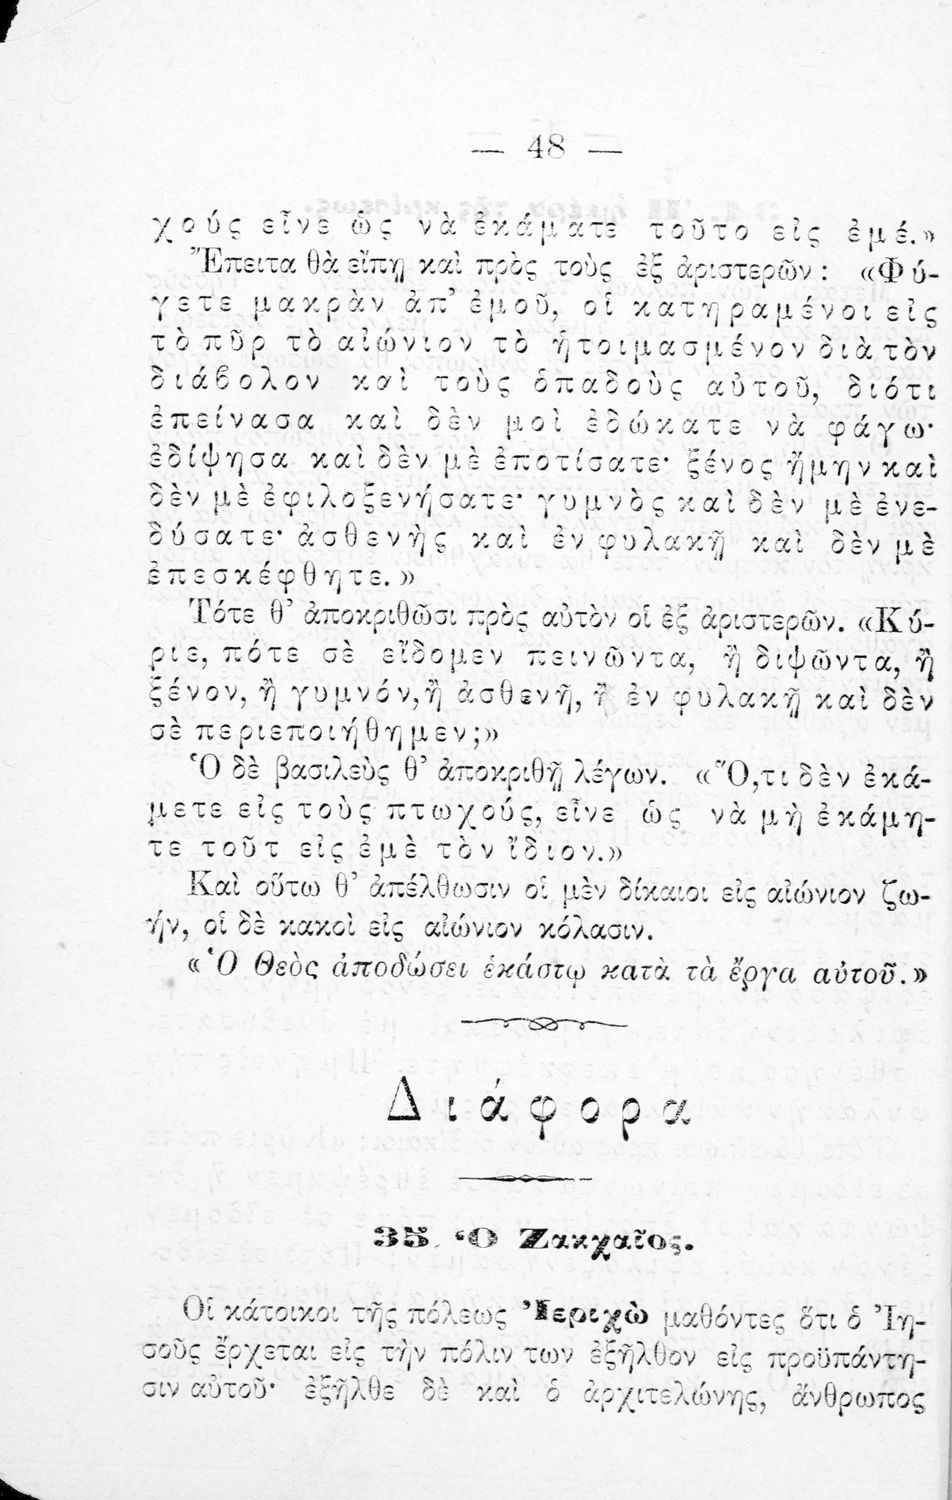 — 48 —
χούς εἶνε ὡς νὰ ἐκάματε τοῦτο εἰς ἐμέ.»
Ἔπειτα θὰ εἴπῃ καὶ πρὸς τοὺς ἐξ ἀριστερῶν: «Φύ-
γετε μακρὰν ἀπ' ἐμοῦ, οἱ κατηραμένοι εἰς
τὸ πῦρ τὸ αἰώνιον τὸ ἡτοιμασμένον διὰ τὸν
διάβολον καὶ τοὺς ὀπαδοὺς αὐτοῦ, διότι
ἐπείνασα καὶ δὲν μοὶ ἐδώκατε νὰ φάγω·
ἐδίψησα καὶ δὲν μὲ ἐποτίσατε· ξένος ἤμην καὶ
δὲν μὲ ἐφιλοξενήσατε· γυμνὸς καὶ δὲν μὲ ἐνε-
δύσατε· ἀσθενὴς καὶ ἐν φυλακῇ καὶ δὲν μὲ
ἐπεσκέφθητε.»
Τότε θ' ἀποκριθῶσι πρὸς αὐτὸν οἱ ἐξ ἀριστερῶν. «Κύ-
ριε, πότε σὲ εἴδομεν πεινῶντα, ἢ διψῶντα, ἢ
ξένον, ἢ γυμνόν, ἢ ἀσθενῆ, ἢ ἐν φυλακῇ καὶ δὲν
σὲ περιεποιήθημεν;»
Ὁ δὲ βασιλεὺς θ' ἀποκριθῇ λέγων. «Ὅ,τι δὲν ἐκά-
μετε εἰς τοὺς πτωχούς, εἶνε ὡς νὰ μὴ ἐκάμη-
τε τοῦτ εἰς ἐμὲ τὸν ἴδιον.»
Καὶ οὕτω θ' ἀπέλθωσιν οἱ μὲν δίκαιοι εἰς αἰώνιον ζω-
ήν, οἱ δὲ κακοὶ εἰς αἰώνιον κόλασιν.
«Ὁ Θεὸς ἀποδώσει ἑκάστῳ κατὰ τὰ ἔργα αὐτοῦ.»
Διάφορα
35. Ὁ Ζακχαῖος.
Οἱ κάτοικοι τῆς πόλεως Ἱεριχὼ μαθόντες ὅτι ὁ Ἰη-
σοῦς ἔρχεται εἰς τὴν πόλιν των ἐξῆλθον εἰς προϋπάντη-
σιν αὐτοῦ· ἐξῆλθε δὲ καὶ ὁ ἀρχιτελώνης, ἄνθρωπος